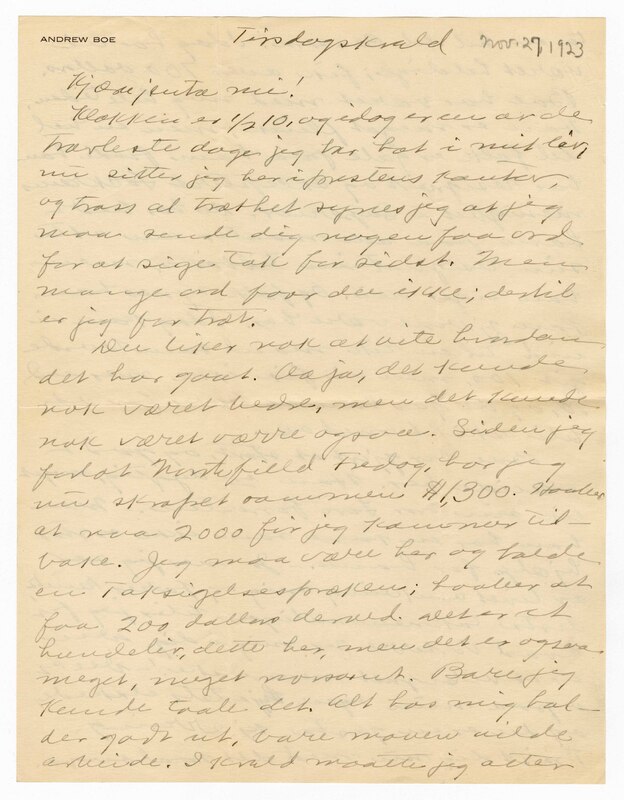 ANDREW BOE
Tirsdagskvæld Nov. 27, 1923
Kjære jenta mi!
Klokken er 1/2 10, og idag er en av de
travleste dage jeg har hat i mit liv,
nu sitter jeg her i prestens kontor,
og trass al træthet synes jeg at jeg
maa sende dig nogen faa ord
for at sige tak for sidst. Men
mange ord faar du ikke; dertil
er jeg for træt.
Du liker nok at vite hvordan
det har gaat. Aa ja, det kunde
nok været bedre, men det kunde
nok været værre ogsaa. Siden jeg
forlot Northfield Fredag, har jeg
nu skrapet sammen $1,300. Haaber
at naa 2000 før jeg kommer til-
bake. Jeg maa være her og holde
en Taksigelsespræken; haaber at
faa 200 dollars derved. Det er et
hundeliv, dette her, men det er ogsaa
meget, meget morsomt. Bare jeg
kunde taale det. Alt hos mig hol-
der godt ut, bare maven vilde
arbeide. I kvæld maatte jeg atter